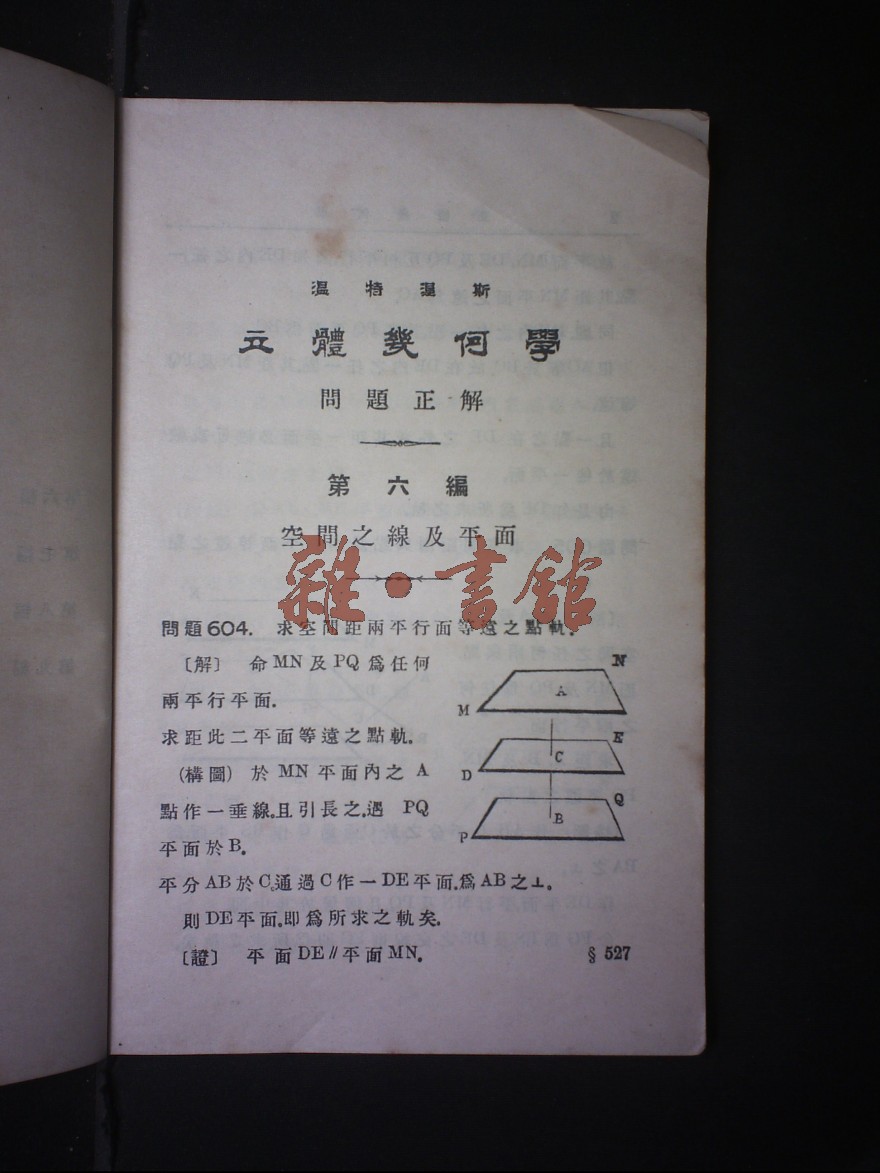 温特渥斯
立體幾何學
問題正解
第六編
空間之線及平面
雜·書館
問題604. 求空間距兩平行面等遠之點軌.
〔解〕 命MN及PQ爲任何
兩平行平面.
求距此二平面等遠之點軌.
(構圖) 於MN平面內之A
點作一垂線.且引長之.遇PQ
平面於B.
平分AB於C。通過C作一DE平面.爲AB之⊥.
則DE平面.即爲所求之軌矣.
〔證〕 平面DE∥平面MN. §527
N
A
M
E
C
D
Q
B
P